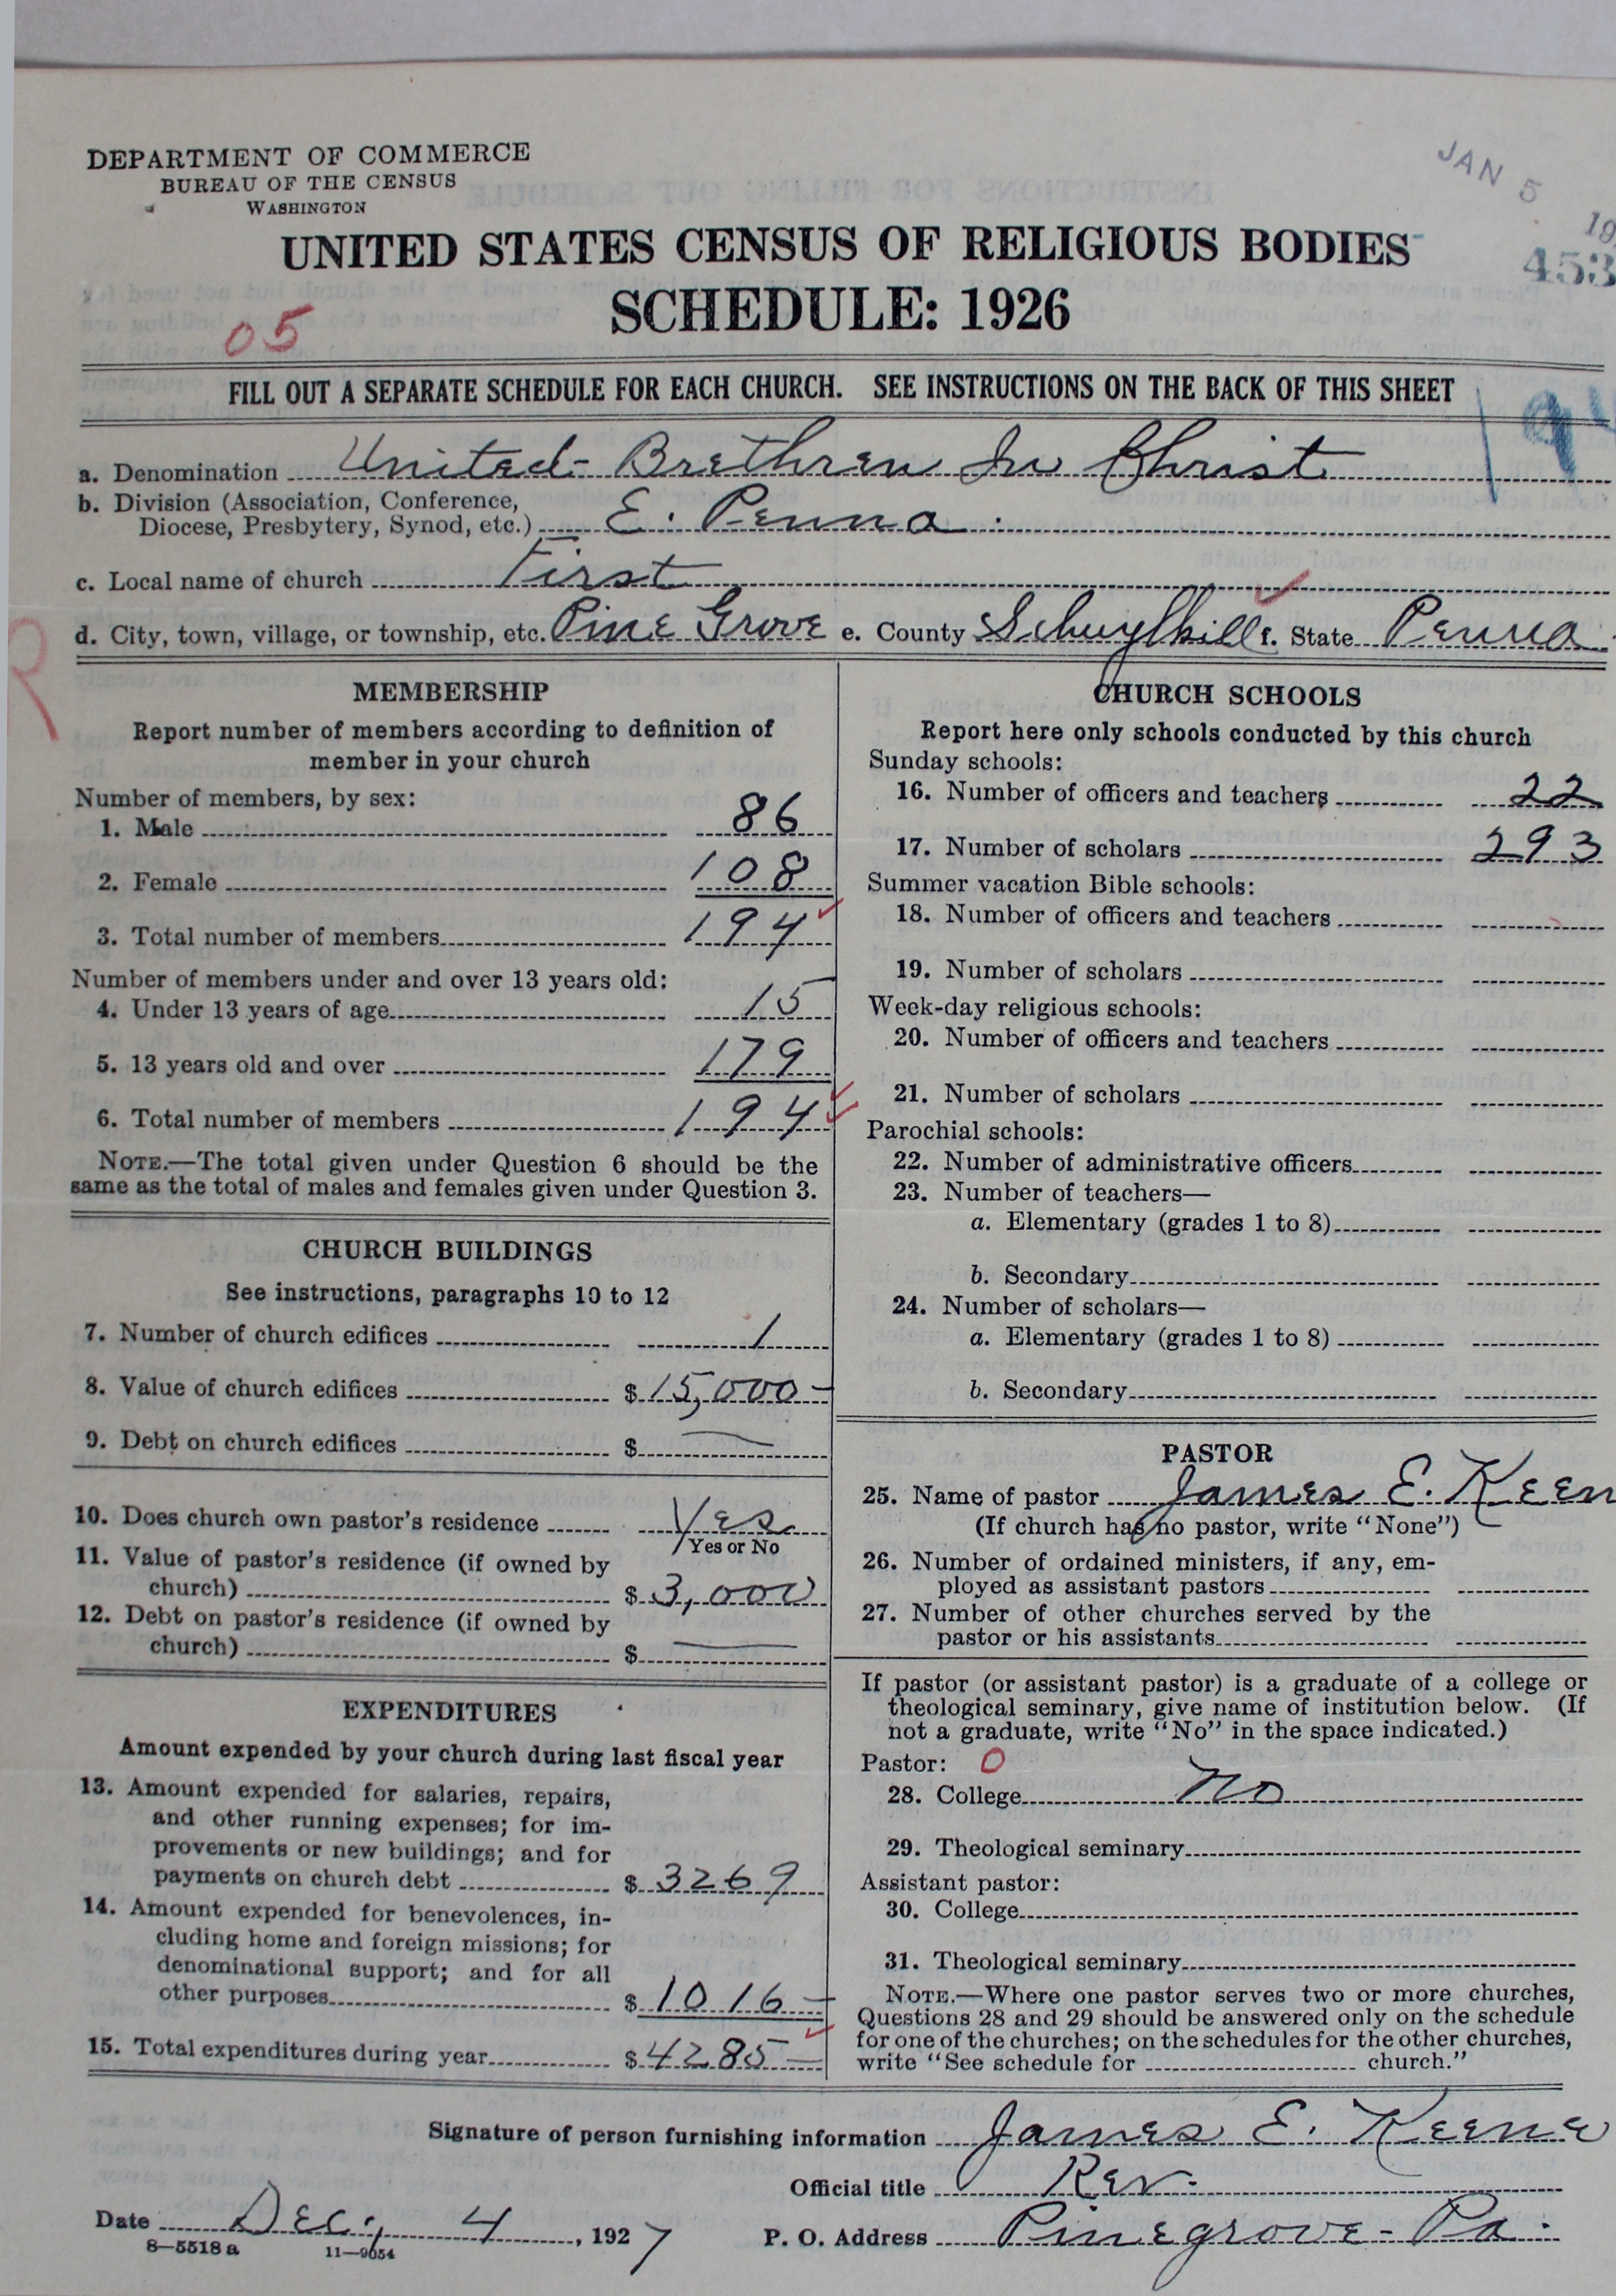 DEPARTMENT OF COMMERCE
BUREAU OF THE CENSUS
WASHINGTON
JAN 5
19
453
UNITED STATES CENSUS OF RELIGIOUS BODIES
SCHEDULE: 1926
05
FILL OUT A SEPARATE SCHEDULE FOR EACH CHURCH. SEE INSTRUCTIONS ON THE BACK OF THIS SHEET
a. Denomination United Brethren In Christ
b. Division (Association, Conference,
Diocese, Presbytery, Synod, etc.) E. Penna.
c. Local name of church First
d. City, town, village, or township, etc. Pine Grove e. County Schuylkill f. State Penna.
R
MEMBERSHIP
Report number of members according to definition of
member in your church
Number of members, by sex:
1. Male 86
2. Female 108
3. Total number of members 194
Number of members under and over 13 years old:
4. Under 13 years of age 15
5. 13 years old and over 179
6. Total number of members 194
NOTE.—The total given under Question 6 should be the
same as the total of males and females given under Question 3.
CHURCH BUILDINGS
See instructions, paragraphs 10 to 12
7. Number of church edifices 1
8. Value of church edifices $15,000-
9. Debt on church edifices $ —
10. Does church own pastor's residence Yes
Yes or No
11. Value of pastor's residence (if owned by
church) $3,000
12. Debt on pastor's residence (if owned by
church) $ —
EXPENDITURES
Amount expended by your church during last fiscal year
13. Amount expended for salaries, repairs,
and other running expenses; for im-
provements or new buildings; and for
payments on church debt $3269
14. Amount expended for benevolences, in-
cluding home and foreign missions; for
denominational support; and for all
other purposes $1016-
15. Total expenditures during year $4285-
CHURCH SCHOOLS
Report here only schools conducted by this church
Sunday schools:
16. Number of officers and teachers 22
17. Number of scholars 293
Summer vacation Bible schools:
18. Number of officers and teachers
19. Number of scholars
Week-day religious schools:
20. Number of officers and teachers
21. Number of scholars
Parochial schools:
22. Number of administrative officers
23. Number of teachers—
a. Elementary (grades 1 to 8)
b. Secondary
24. Number of scholars—
a. Elementary (grades 1 to 8)
b. Secondary
PASTOR
25. Name of pastor James E. Keen
(If church has no pastor, write "None")
26. Number of ordained ministers, if any, em-
ployed as assistant pastors
27. Number of other churches served by the
pastor or his assistants
If pastor (or assistant pastor) is a graduate of a college or
theological seminary, give name of institution below. (If
not a graduate, write "No" in the space indicated.)
Pastor: 0
28. College No
29. Theological seminary
Assistant pastor:
30. College
31. Theological seminary
NOTE.—Where one pastor serves two or more churches,
Questions 28 and 29 should be answered only on the schedule
for one of the churches; on the schedules for the other churches,
write "See schedule for church."
Signature of person furnishing information James E. Keene
Official title Rev.
Date Dec., 4, 1927 P. O. Address Pinegrove-Pa.
8—5518 a 11—9054